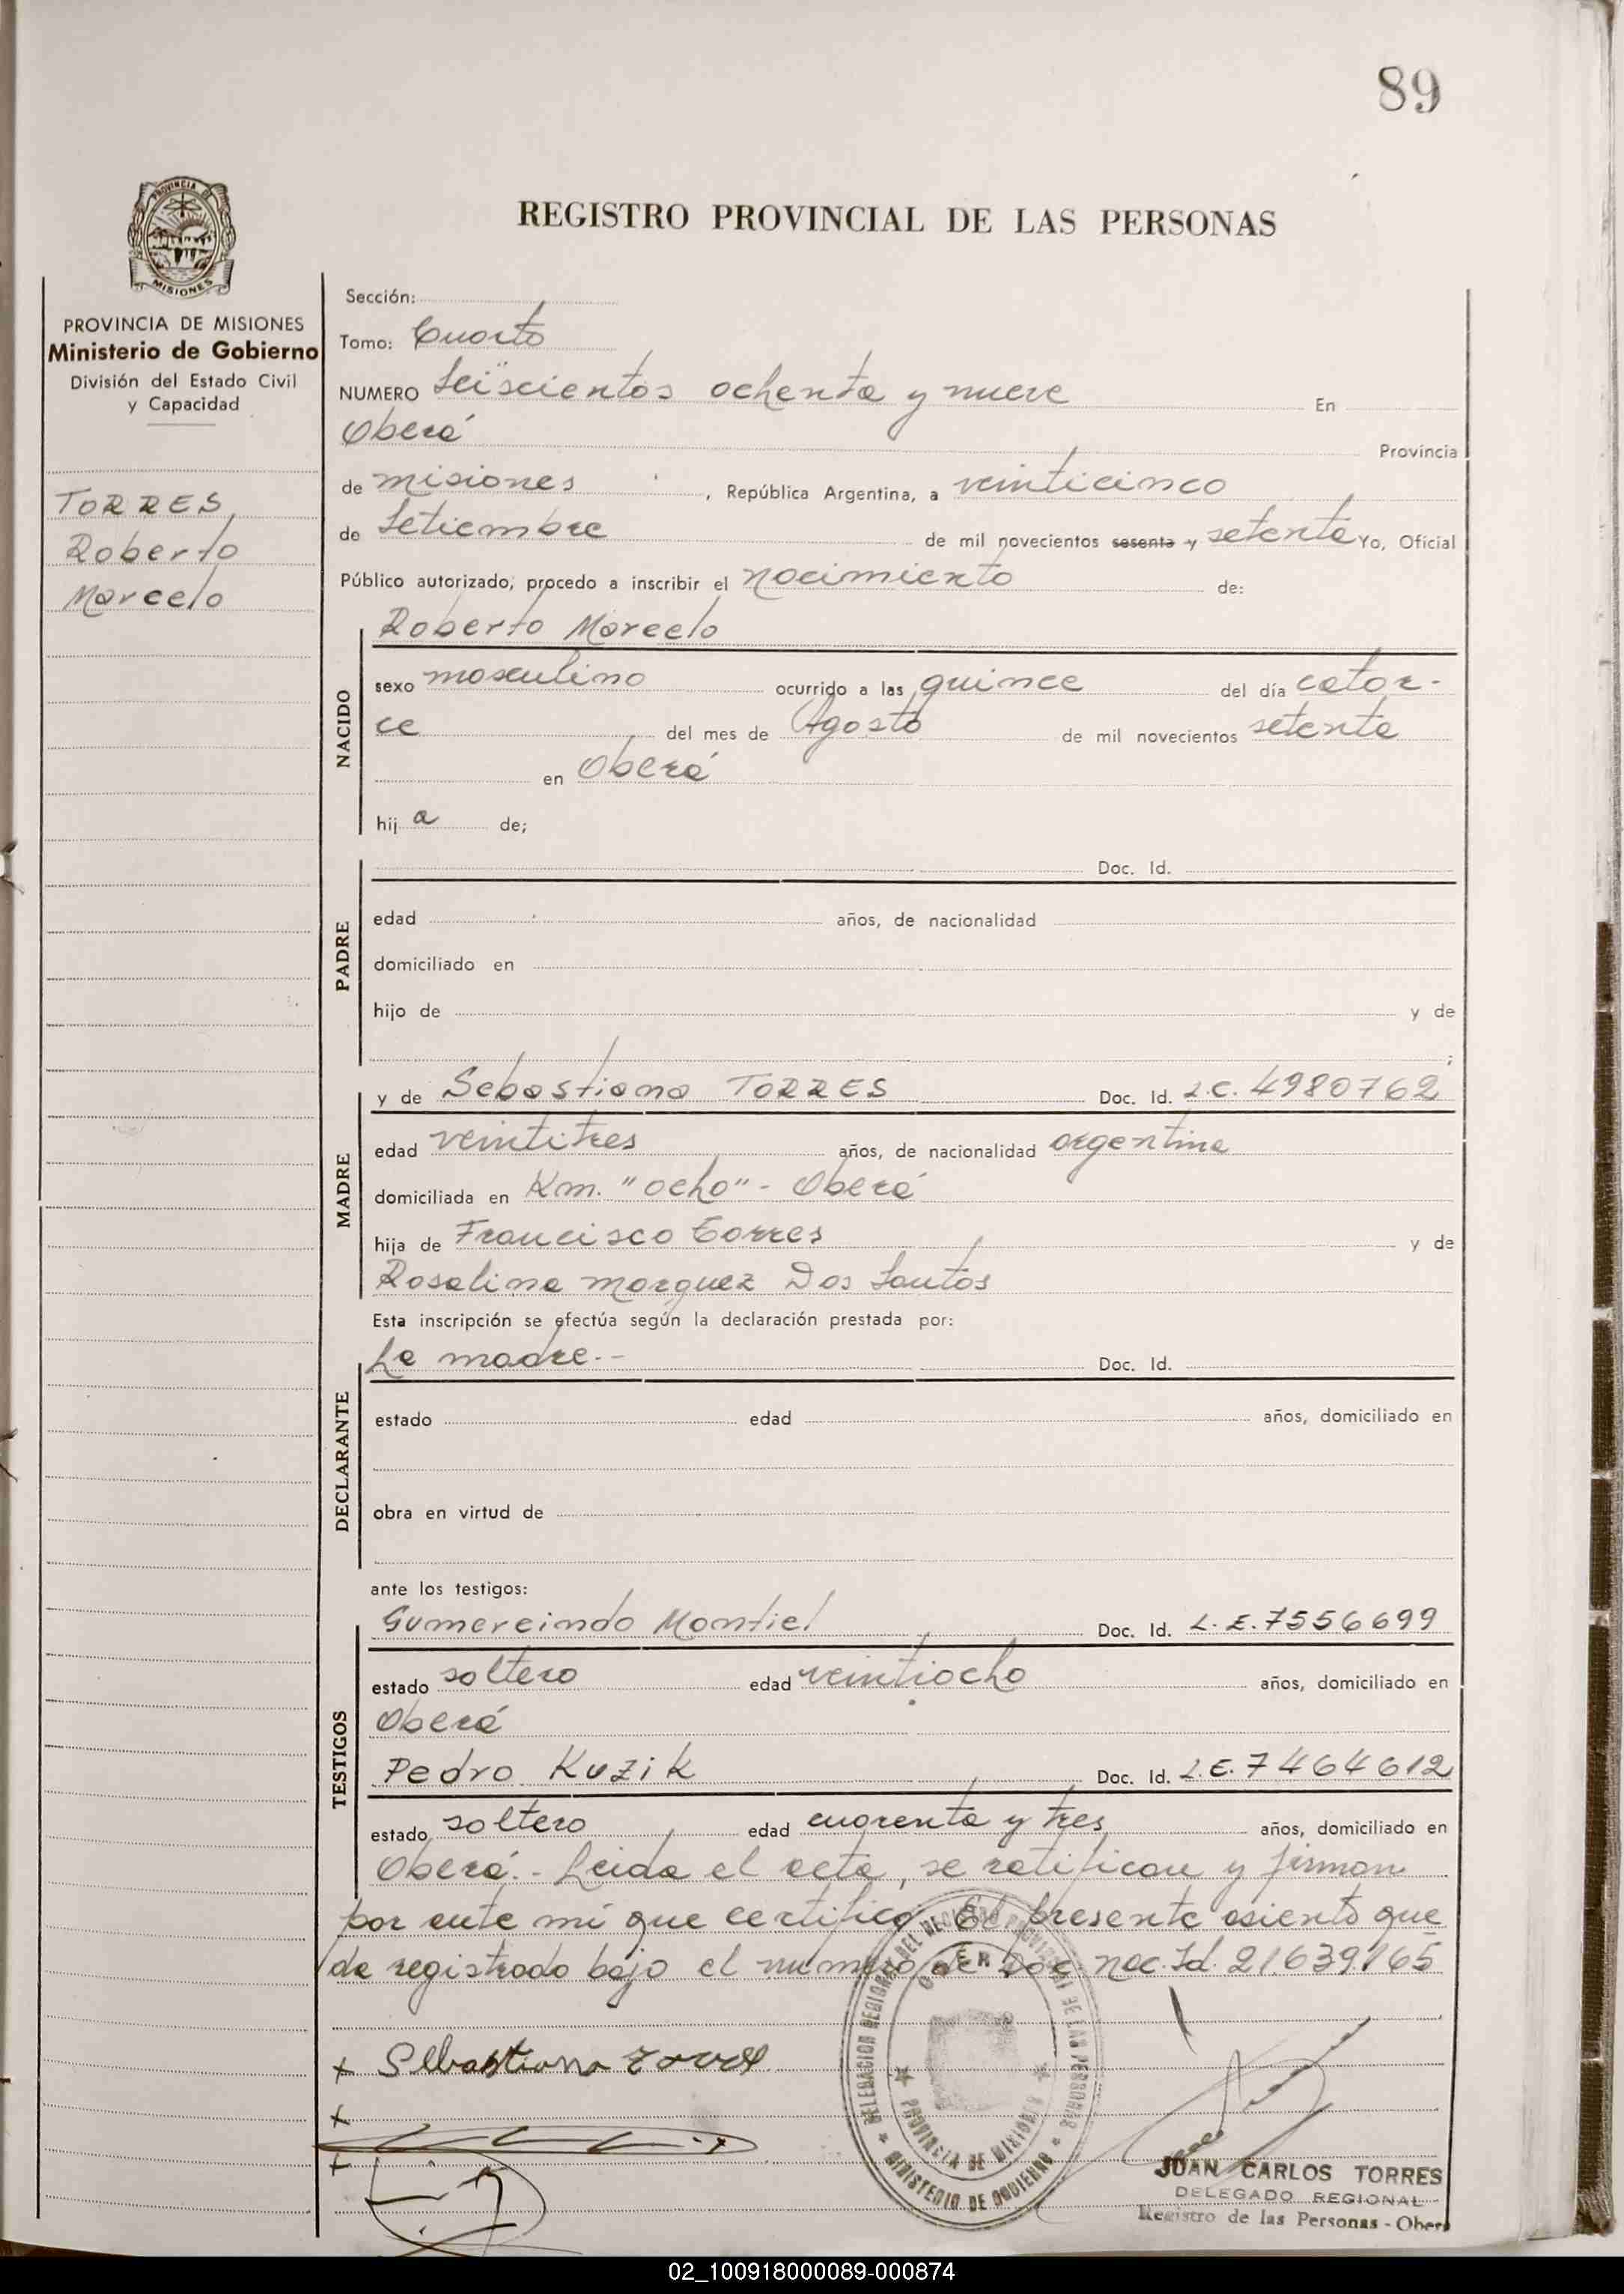 89
PROVINCIA DE
MISIONES
REGISTRO PROVINCIAL DE LAS PERSONAS
PROVINCIA DE MISIONES
Ministerio de Gobierno
División del Estado Civil
y Capacidad
TORRES
Roberto
Marcelo
Sección:
Tomo: Cuarto
NUMERO Seiscientos ochenta y nueve En
Oberá Provincia
de misiones, República Argentina, a veinticinco
de Setiembre de mil novecientos sesenta y setenta Yo, Oficial
Público autorizado, procedo a inscribir el nacimiento de:
Roberto Marcelo
NACIDO
sexo masculino ocurrido a las quince del día cator-
ce del mes de Agosto de mil novecientos setenta
en Oberá
hij a de;
PADRE
Doc. Id.
edad años, de nacionalidad
domiciliado en
hijo de y de
;
MADRE
y de Sebastiana TORRES Doc. Id. L.C. 4980762
edad veintitres años, de nacionalidad argentina
domiciliada en Km. "ocho" - Oberá
hija de Francisco Torres y de
Rosalina Marquez Dos Santos
Esta inscripción se efectúa según la declaración prestada por:
DECLARANTE
La madre.- Doc. Id.
estado edad años, domiciliado en
obra en virtud de
ante los testigos:
TESTIGOS
Gumercindo Montiel Doc. Id. L.E. 7556699
estado soltero edad veintiocho años, domiciliado en
Oberá
Pedro Kuzik Doc. Id. L.E. 7464612
estado soltero edad cuarenta y tres años, domiciliado en
Oberá.- Leida el acta, se ratifican y firman
por ante mi que certifico. El presente asiento que
da registrado bajo el numero de Doc. nac. Id. 21.639.165
x Sebastiana Torres
x
x
DELEGACION REGIONAL DEL REGISTRO PROVINCIAL DE LAS PERSONAS
OBERA
PROVINCIA DE MISIONES
MINISTERIO DE GOBIERNO
JUAN CARLOS TORRES
DELEGADO REGIONAL
Registro de las Personas - Oberá
02_100918000089-000874